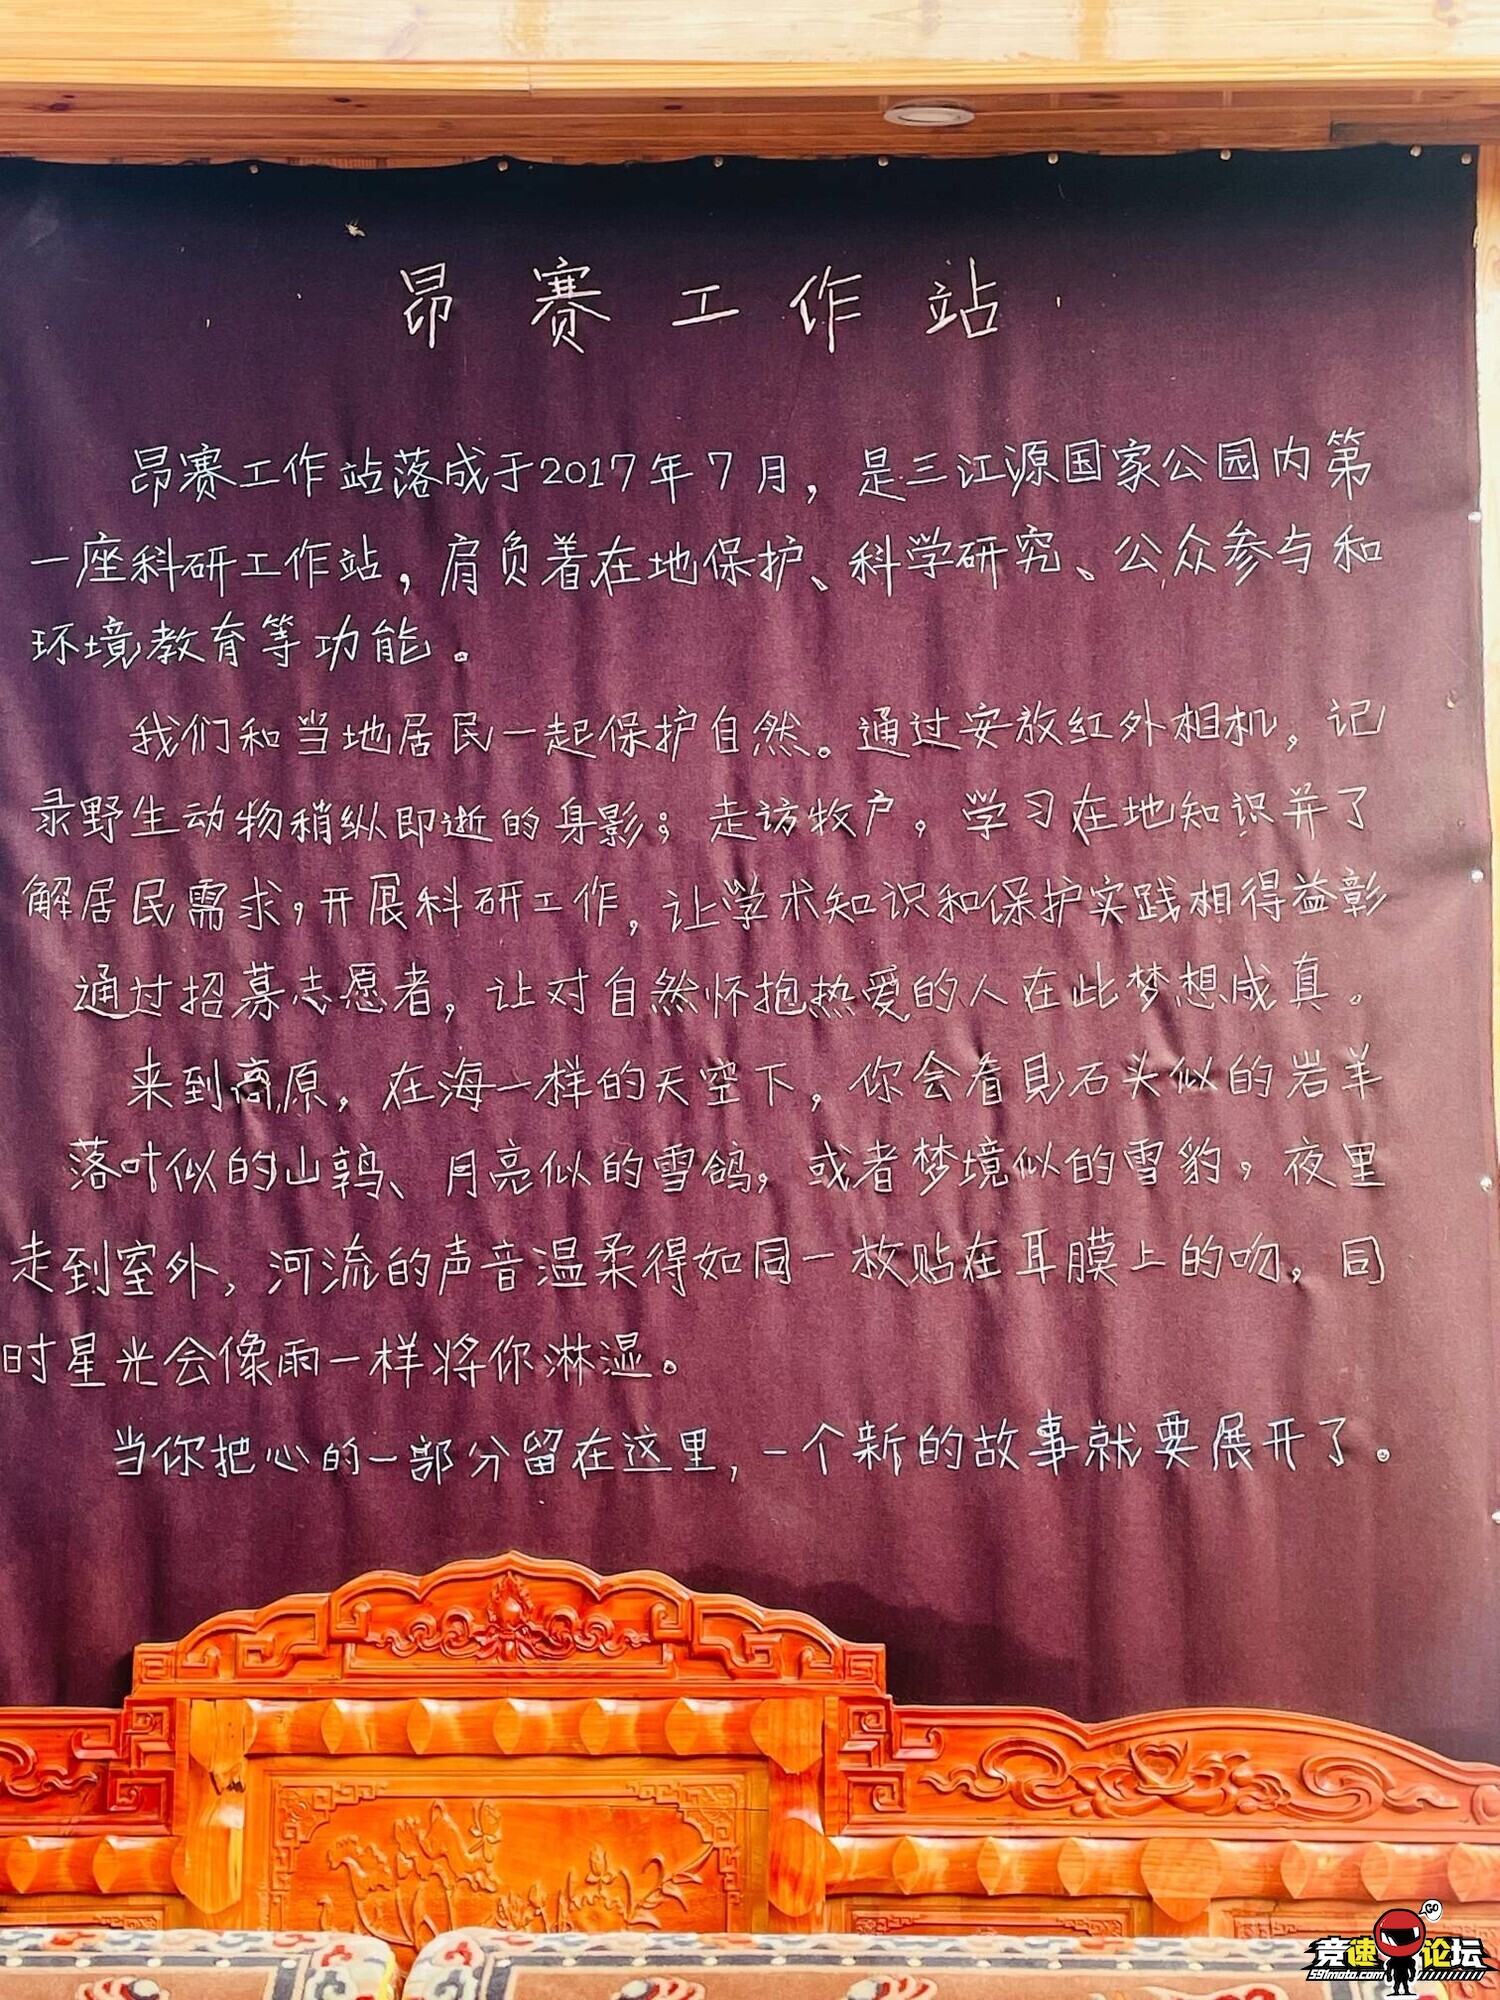 昂赛工作站
昂赛工作站落成于2017年7月，是三江源国家公园内第
一座科研工作站，肩负着在地保护、科学研究、公众参与和
环境教育等功能。
我们和当地居民一起保护自然。通过安放红外相机，记
录野生动物稍纵即逝的身影；走访牧户，学习在地知识并了
解居民需求，开展科研工作，让学术知识和保护实践相得益彰
通过招募志愿者，让对自然怀抱热爱的人在此梦想成真。
来到高原，在海一样的天空下，你会看見石头似的岩羊
落叶似的山鹑、月亮似的雪鸽，或者梦境似的雪豹，夜里
走到室外，河流的声音温柔得如同一枚贴在耳膜上的吻，同
时星光会像雨一样将你淋湿。
当你把心的一部分留在这里，一个新的故事就要展开了。
GO
竞速论坛
591moto.com